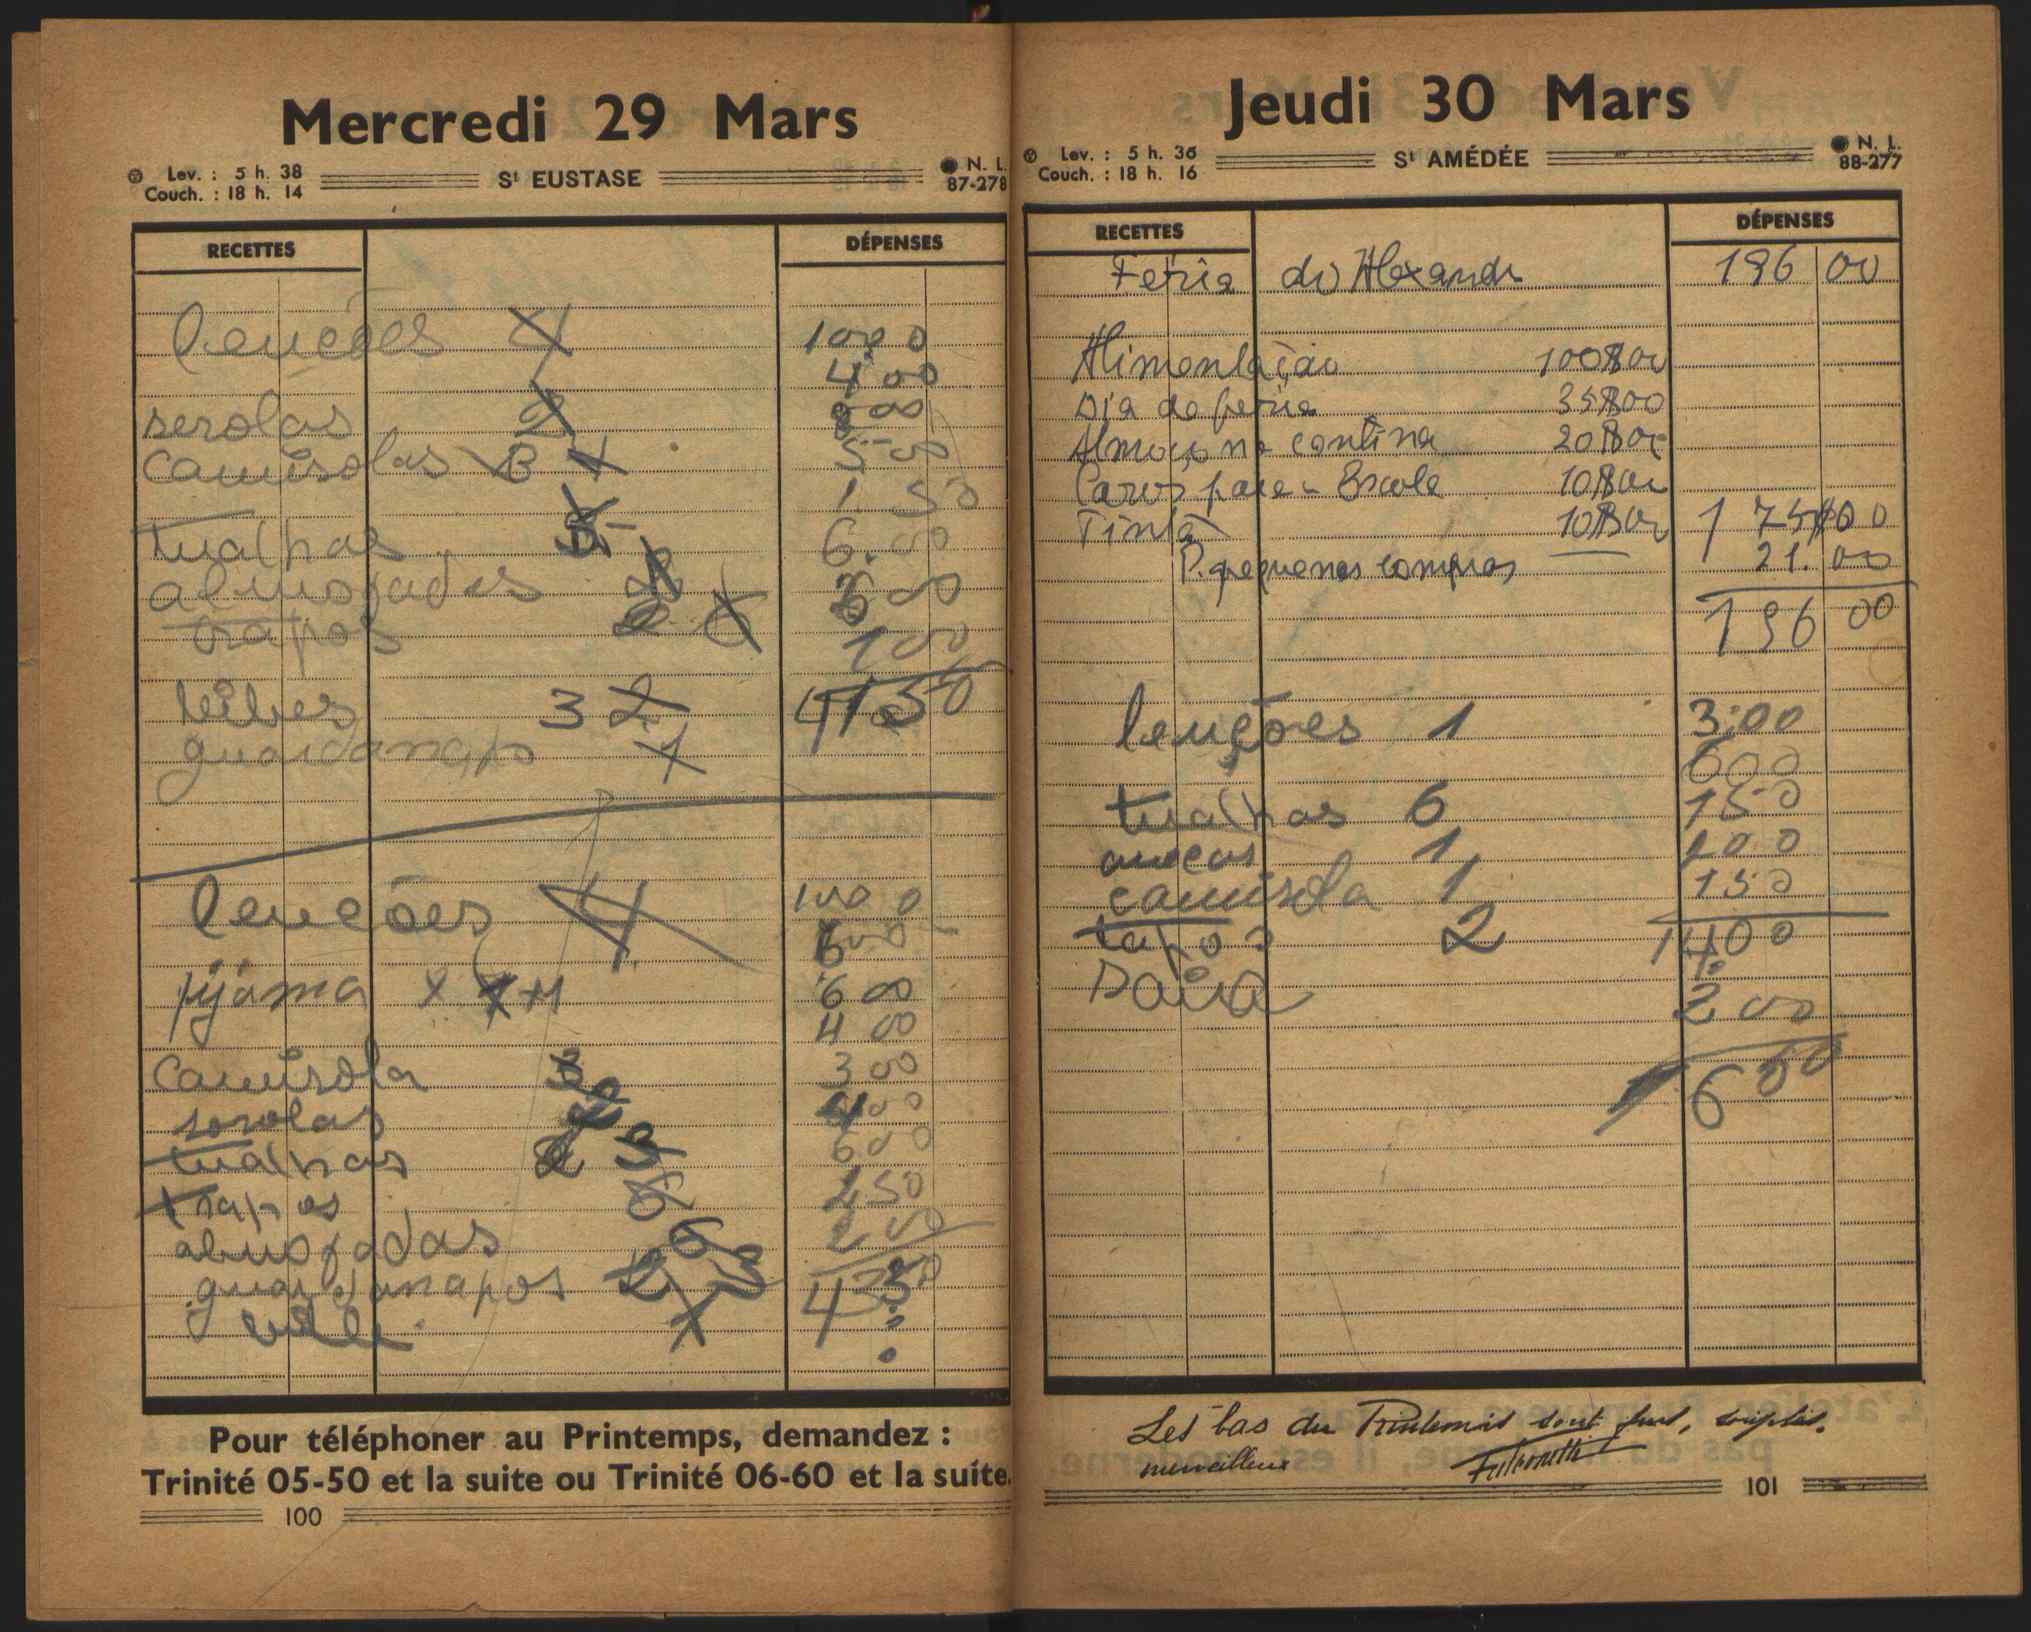 Mercredi 29 Mars
Lev. : 5 h. 38
Couch. : 18 h. 14
St EUSTASE
N. L.
87-278
RECETTES
DÉPENSES
lenções 4 1000
400
serolas 2 800
camisolas 3 4 500
1 50
tualhas 5 6.00
almofades 2 600
trapos 2 6 100
bibes 3 2 4150
guardanapo 1
lenções 4 1000
600
pijama 600
400
camisola 3 300
serolas 2 400
tualhas 2 3 600
trapos 6 250
almofadas 6 200
guardanapos 2 3 43
1
Pour téléphoner au Printemps, demandez :
Trinité 05-50 et la suite ou Trinité 06-60 et la suite.
100
Jeudi 30 Mars
Lev. : 5 h. 36
Couch. : 18 h. 16
St AMÉDÉE
N. L.
88-277
RECETTES
DÉPENSES
Feria do Alexandre 196 00
Alimentação 100$00
Dia de feria 35$00
Almoço na cantina 20$00
Carros para a Escola 10$00
Tinta 10$00 175$00
P. pequenas compras 21.00
196 00
lenções 1 3:00
600
tualhas 6 150
1 200
camisola 1 150
tapos 2 1400
saia
200
1600
Les bas du Printemps sont fins, souples,
merveilleux
101